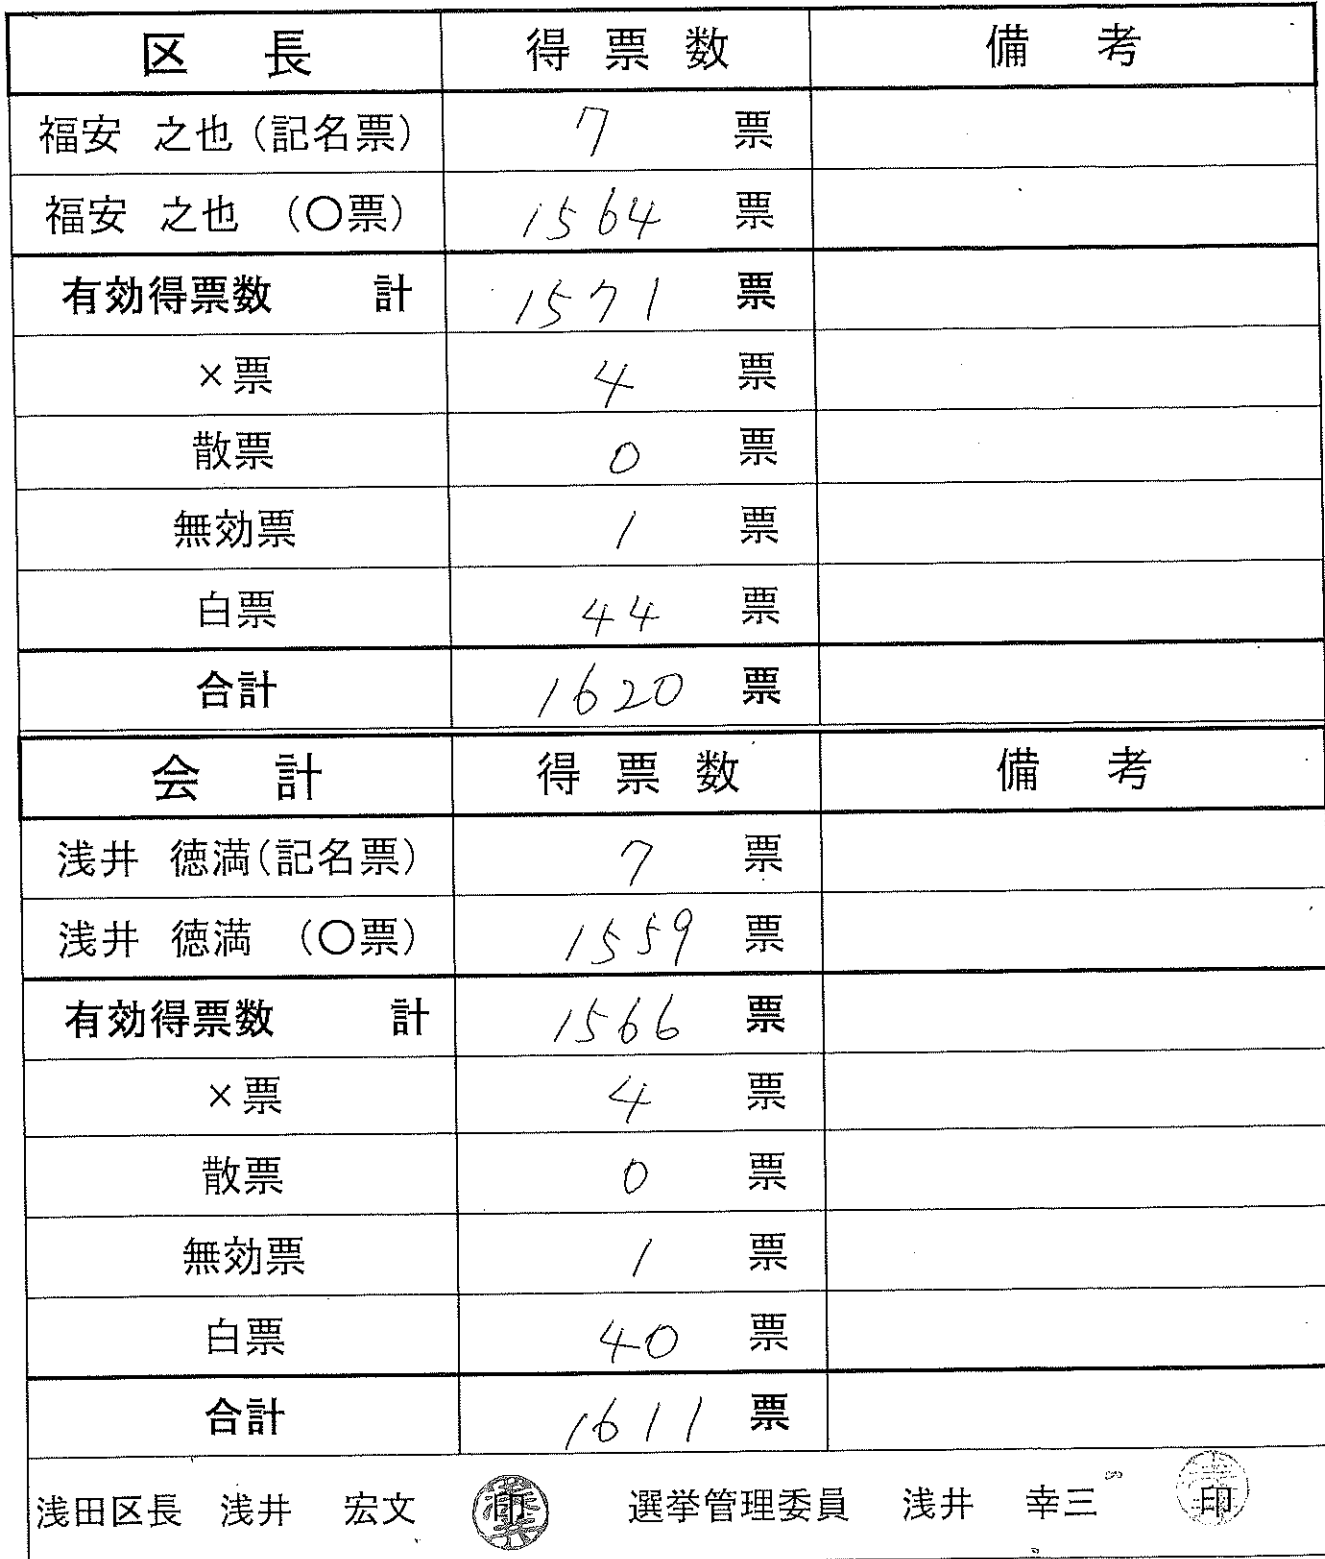 区 長 得 票 数 備 考
福安 之也（記名票） 7 票
福安 之也 （〇票） 1564 票
有効得票数 計 1571 票
×票 4 票
散票 0 票
無効票 1 票
白票 44 票
合計 1620 票
会 計 得 票 数 備 考
浅井 徳満（記名票） 7 票
浅井 徳満 （〇票） 1559 票
有効得票数 計 1566 票
×票 4 票
散票 0 票
無効票 1 票
白票 40 票
合計 1611 票
浅田区長 浅井 宏文 印 選挙管理委員 浅井 幸三 印